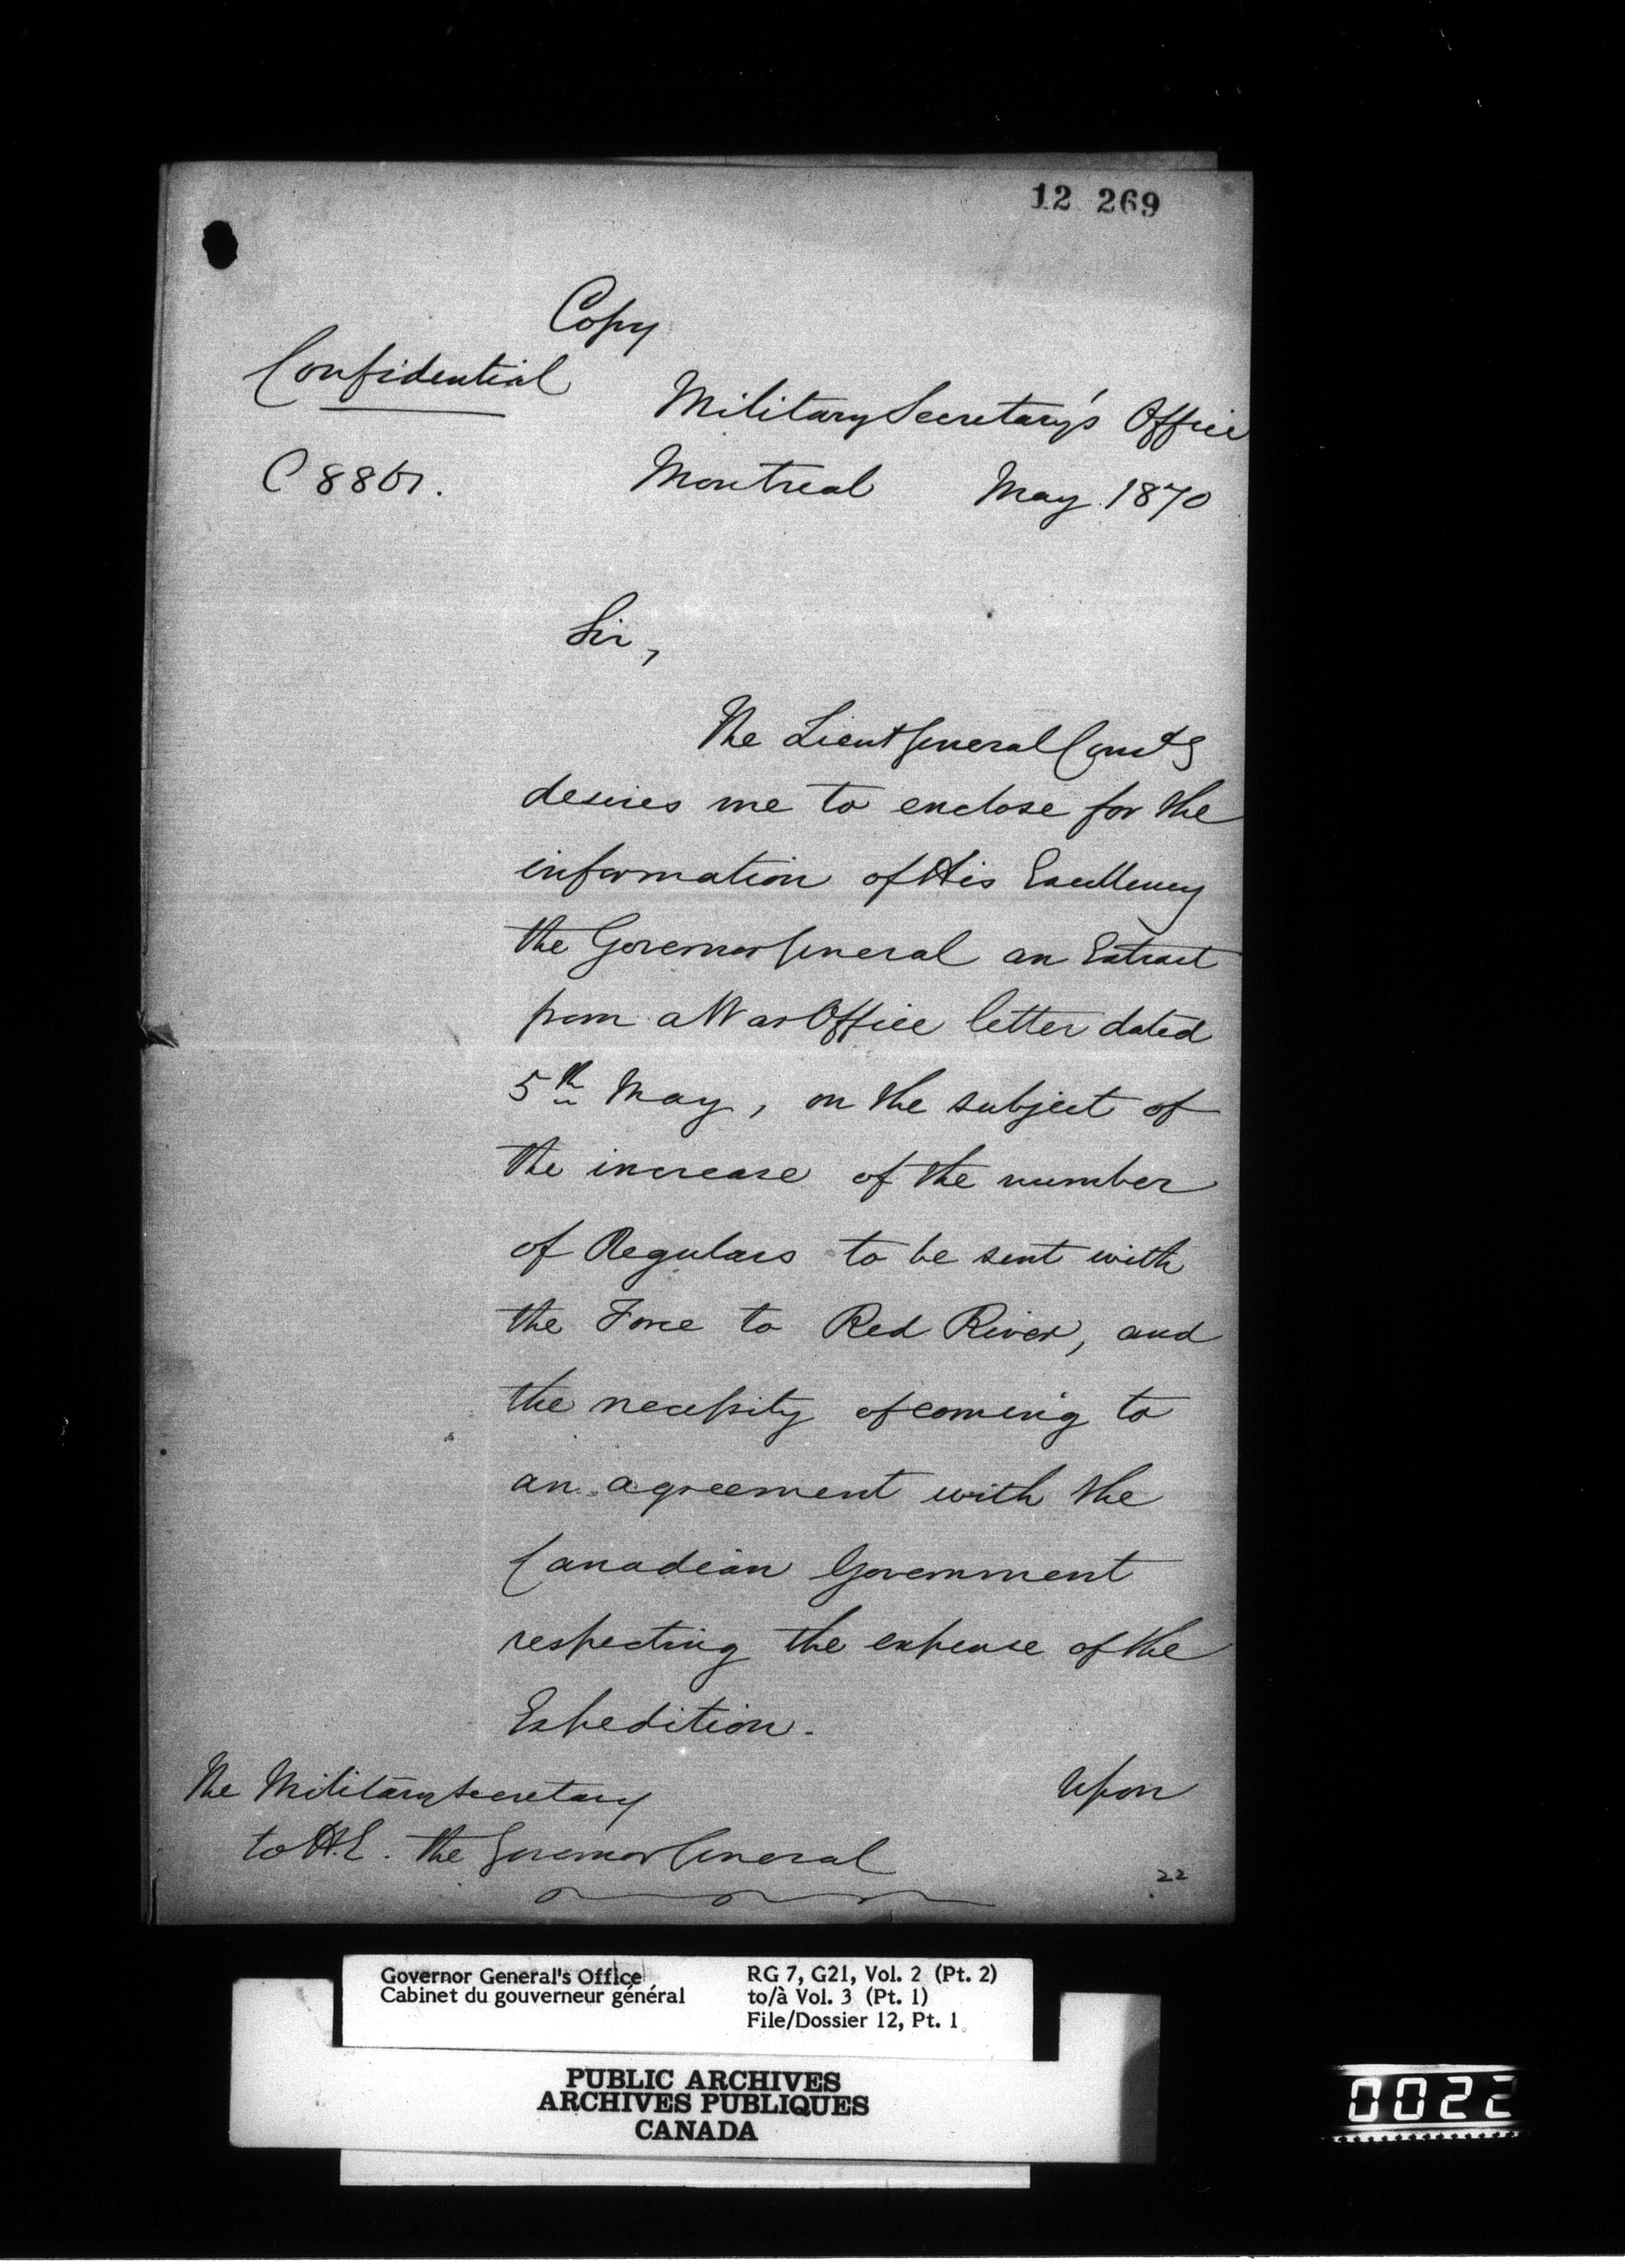 12 269
Copy
Confidential
Military Secretary's Office
C 886.
Montreal May 1870
Sir,
The Lieut General Comdg
desires me to enclose for the
information of His Excellency
the Governor General an Extract
from a War Office letter dated
5th May, on the subject of
the increase of the number
of Regulars to be sent with
the Force to Red River, and
the necessity of coming to
an agreement with the
Canadian Government
respecting the expense of the
Expedition.
Upon
The Military Secretary
to H.E. the Governor General
22
Governor General's Office
Cabinet du gouverneur général
RG 7, G21, Vol. 2 (Pt. 2)
to/à Vol. 3 (Pt. 1)
File/Dossier 12, Pt. 1
PUBLIC ARCHIVES
ARCHIVES PUBLIQUES
CANADA
0022